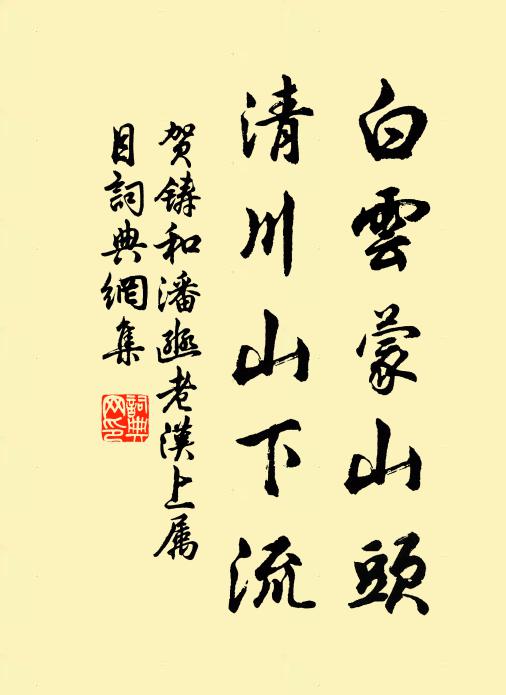 白雲蒙山頭
清川山下流
賀鑄和潘邠老漢上属
目詞典網集
詞典
网印